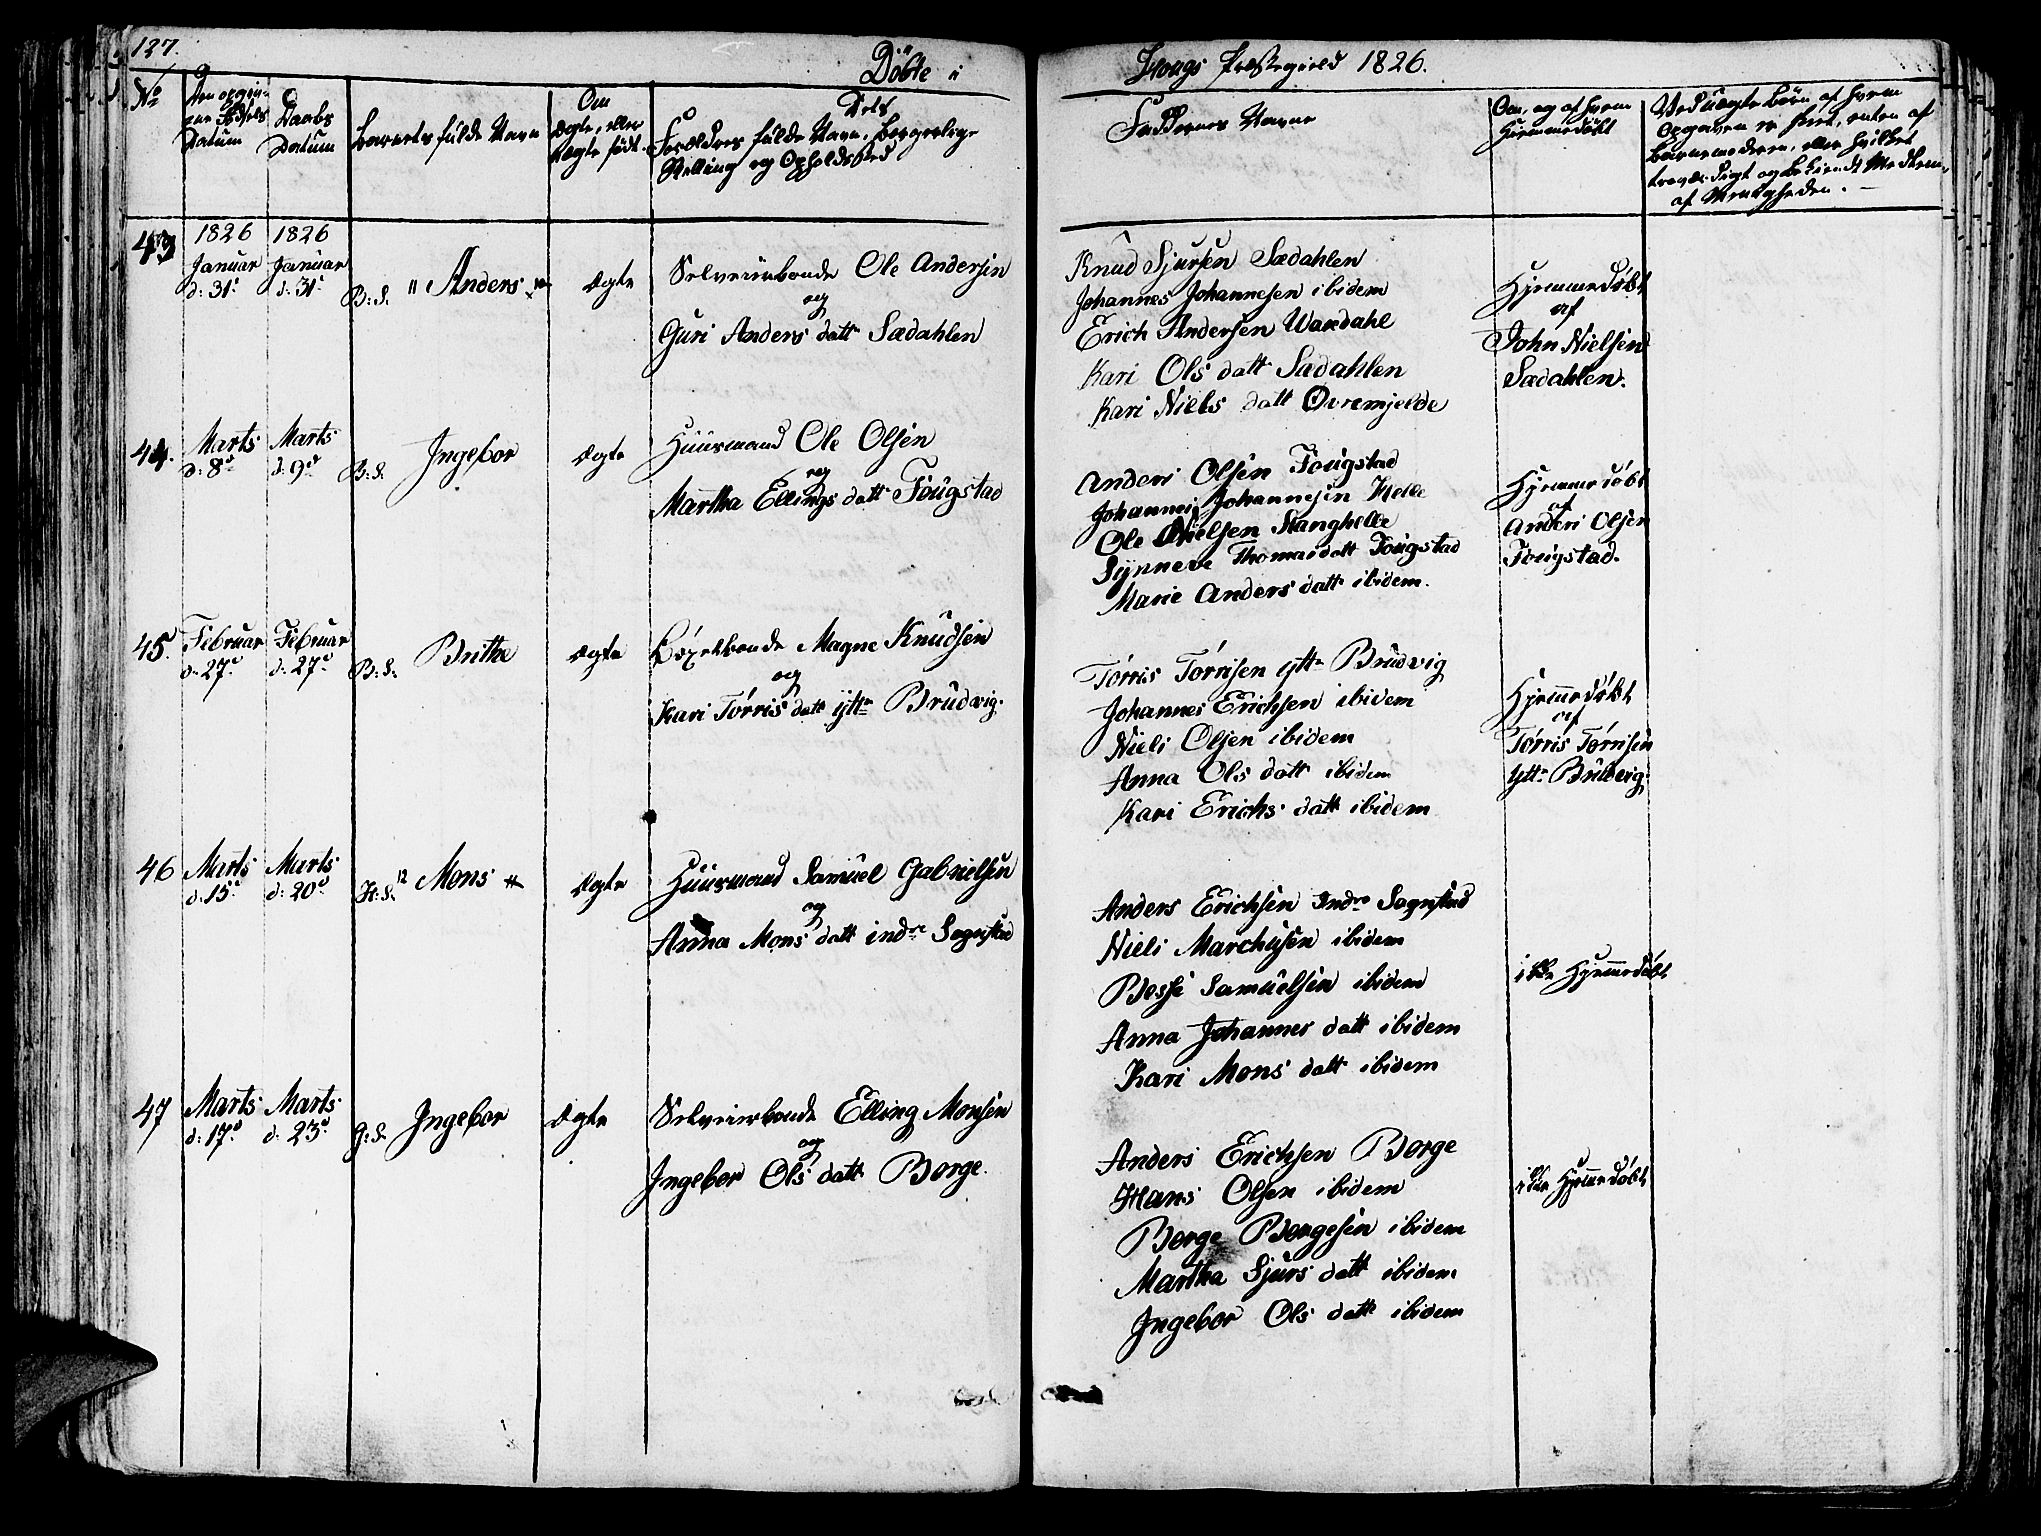 127.
Döbte i
Hougs Præstegield 1826.
No
Den opgiv-
ne Fødsels
Datum
Daabs
Datum
Barnets fulde Navn
Om
ægte, eller
uægte født.
Dets
Forældres fulde Navn, Borgerlige
Stilling og Opholdsted
Faddernes Navne
Om, og af hvem
Hjemmedøbt
Ved uægte børn, af hvem
Opgaven er skeet, enten af
Barnemoderen, eller hvilket
troværdigt og bekiendt Medlem
af Menigheden.
43
1826
Januar
d: 31.
1826
Januar
d: 31.
B: S.
" Anders
ægte
Selveierbonde Ole Andersen
og
Guri Anders datt Sædahlen
Knud Sjursen Sædahlen
Johannes Johannesen ibidem
Erich Andersen Wardahl
Kari Ols datt Sædahlen
Kari Niels datt Øvremjelde
Hjemmedøbt
af
John Nielsen
Sædahlen.
44.
Marts
d: 8d
Marts
d: 9d
B: S.
Ingebor
ægte
Huusmand Ole Olsen
og
Martha Ellings datt Fougstad
Anders Olsen Fougstad
Johannes Johannesen Helle
Ole Nielsen Stanghelle
Synneve Thomasdatt Fougstad
Marie Anders datt ibidem.
Hjemmedøbt
af
Anders Olsen
Fougstad.
45.
Februar
d: 27d
Februar
d: 27d
B: S.
Brithe
ægte
Bøxelbonde Magne Knudsen
og
Kari Tørris datt ytt Brudvig.
Tørris Tørrisen ytt Brudvig
Johannes Erichsen ibidem
Niels Olsen ibidem
Anna Ols datt ibidem
Kari Erichs datt ibidem
Hjemmedøbt
af
Tørris Tørrisen
ytt Brudvig.
46
Marts
d: 15d
Marts
d: 20d
H: S.
12 Mons
ægte
Huusmand Samuel Gabrielsen
og
Anna Mons datt indre Sognstad
Anders Erichsen Indre Sognstad
Niels Marchusen ibidem
Besse Samuelsen ibidem
Anna Johannes datt ibidem
Kari Mons datt ibidem
ikke Hjemmedøbt
47
Marts
d: 17d
Marts
d: 23d
G: S.
Ingebor
ægte
Selveierbonde Elling Monsen
og
Ingebor Ols datt Borge.
Anders Erichsen Borge
Hans Olsen ibidem
Borge Borgesen ibidem
Martha Sjurs datt ibidem
Ingebor Ols datt ibidem
ikke Hjemmedøbt